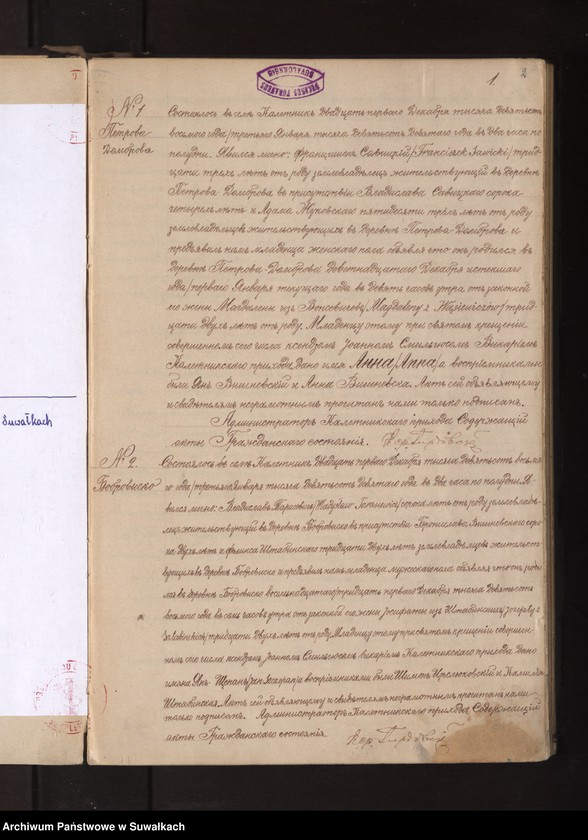 1.
2
№ 1
Петрова
Домброва
Состоялось въ селѣ Калетникъ двадцать перваго Декабря тысяча девятьсотъ
восьмаго года /третьяго Января тысяча девятьсотъ девятаго года въ два часа по
полудни. Явился лично: Францишекъ Савицкій /Franciszek Sawicki/ трид-
цати трехъ лѣтъ отъ роду земловладѣлецъ жительствующій въ деревнѣ
Петрова-Домброва въ присутствіи Владислава Савицкаго сорока
четырехъ лѣтъ и Адама пятидесяти трехъ лѣтъ отъ роду
земловладѣльцевъ жительствующихъ въ деревнѣ Петрова Домброва и
предъявилъ намъ младенца женскаго пола объявляя что онъ родился въ
деревнѣ Петрова-Домброва девятнадцатаго Декабря истекшаго
года /перваго Января текущаго года въ девять часовъ утра отъ законной
его жены Магдалены изъ /Magdaleny z / трид-
цати двухъ лѣтъ отъ роду. Младенцу этому при святомъ крещеніи
совершенномъ сего числа ксендзомъ Іоанномъ Викаріемъ
Калетникскаго прихода, дано имя Анна /Anna/ а воспріемниками
были Янъ Вишневскій и Анна Вишневска. Актъ сей объявляющему
и свидѣтелямъ неграмотнымъ прочитанъ нами только подписанъ.
Администраторъ Калетникскаго прихода Содержащій
акты Гражданскаго состоянія.
№ 2.
Бобровиско
Состоялось въ селѣ Калетникъ двадцать перваго Декабря тысяча девятьсотъ восьма-
го года /третьяго Января тысяча девятьсотъ девятаго года въ два часа по полудни. Я-
вился лично: Владиславъ /Władysław / сорока лѣтъ отъ роду земловладѣ-
лецъ жительствующій въ деревнѣ Бобровиско въ присутствіи Бронислава Вишневскаго соро-
ка двухъ лѣтъ и Феликса Штабинскаго тридцати двухъ лѣтъ земловладѣльцевъ жительст-
вующихъ въ деревнѣ Бобровиско и предъявилъ намъ младенца мужескаго пола объявляя что онъ роди-
лся въ деревнѣ Бобровиско восьмнадцатаго /тридцать перваго Декабря тысяча девятьсотъ
восьмаго года въ семь часовъ утра отъ законной его жены Іозефаты изъ /Józefaty z
/ тридцати двухъ лѣтъ отъ роду. Младенцу этому при святомъ крещеніи совершен-
номъ сего числа ксендзомъ Іоанномъ викаріемъ Калетникскаго прихода дано
имена Янъ а воспріемниками были Шимонъ и
Штабинская. Актъ сей объявляющему и свидѣтелямъ неграмотнымъ прочитанъ нами
только подписанъ. Администраторъ Калетникскаго прихода Содержащій
акты Гражданскаго состоянія
Suwałkach
Archiwum Państwowe w Suwałkach